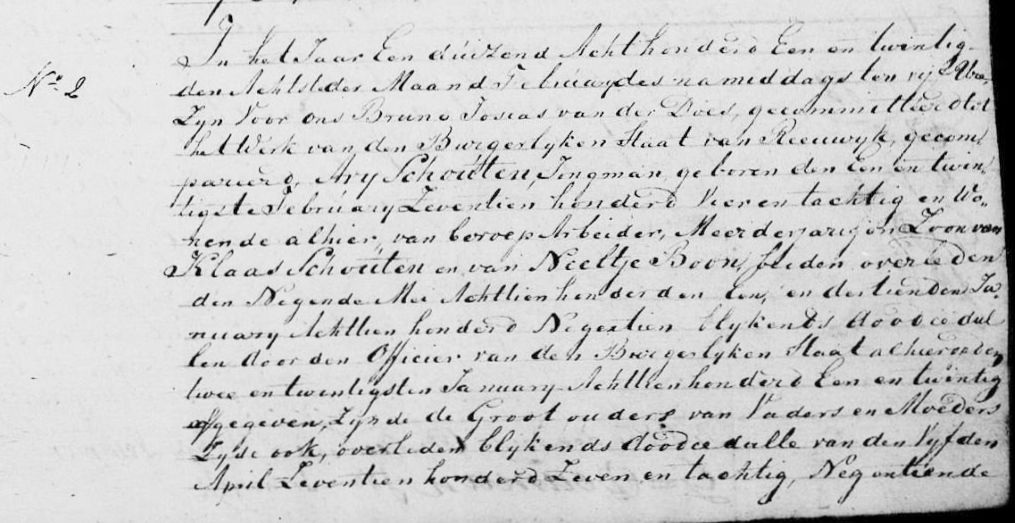 No 2
In het Jaar Een duizend Achthonderd Een en twintig
den Achtste der Maand February des namiddags ten vijf Ure
Zyn Voor ons Bruno Josias van der Does, gecommitteerd tot
het Werk van den Burgerlyken Staat van Reeuwyk, gecom
pareerd, Ary Schouten, Jongman, geboren den Een en twin
tigste February Zeventien honderd Vier en tachtig en Wo
nende alhier, van beroep Arbeider, Meerderjarig en Zoon van
Klaas Schouten en van Neeltje Boon, beiden overleden
den Negende Mei Achttien honderd en Een, en dertienden Ja
nuary Achttien honderd Negentien blykends doodcedul
len door den Officier van den Burgerlyken Staat alhier op den
twee en twintigsten January Achttienhonderd Een en twintig
afgegeven, Zynde de Grootouders van Vaders en Moeders
Zyde ook, overleden blykends doodcedulle van den Vyfden
April Zeventien honderd Zeven en tachtig, Negentiende